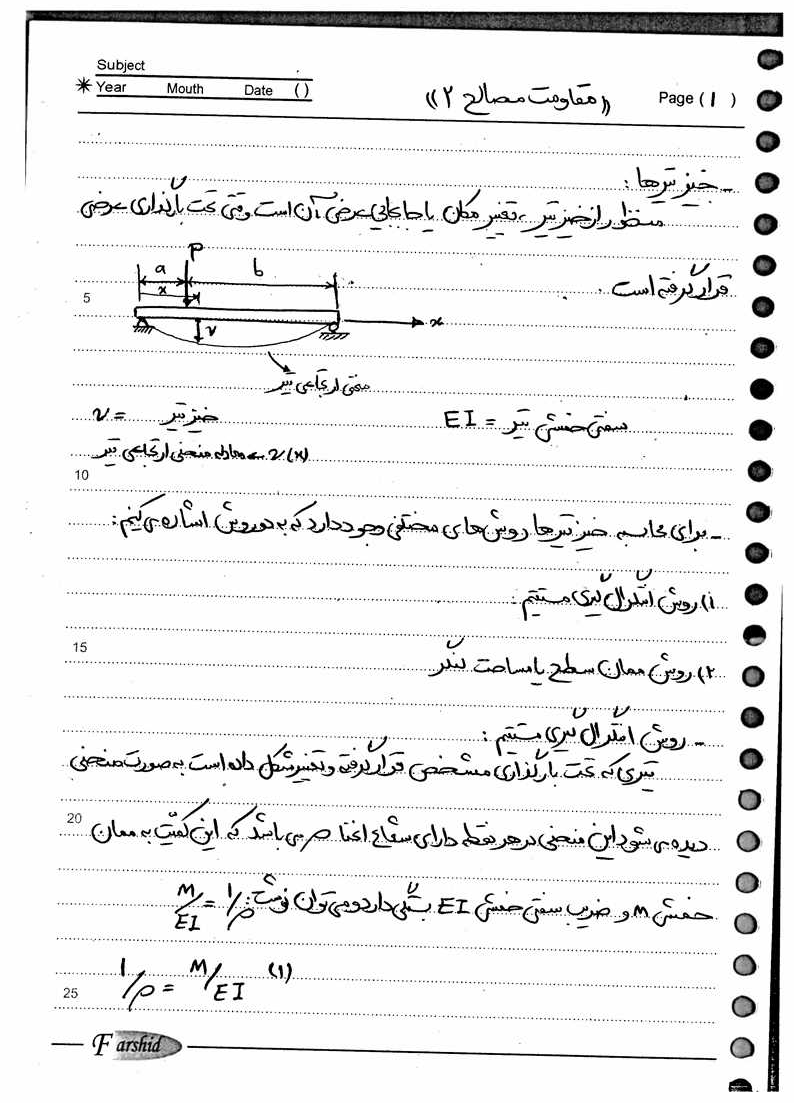 Subject
Year Mouth Date ( )
«مقاومت مصالح ۲»
Page (1)
- خیز تیرها:
منظور از خیز تیر، تغییر مکان یا جابجایی عرضی آن است وقتی تحت بارگذاری عرضی
قرار گرفته است.
P
a b
x
5
v x
منحنی ارتجاعی تیر
v = خیز تیر
EI = سختی خمشی تیر
v(x) → معادله منحنی ارتجاعی تیر
10
- برای محاسبه خیز تیرها روش‌های مختلفی وجود دارد که به دو روش اشاره می‌کنیم:
۱) روش انتگرال گیری مستقیم:
15
۲) روش ممان سطح یا مساحت لنگر
- روش انتگرال گیری مستقیم:
تیری که تحت بارگذاری مشخص قرار گرفته و تغییر شکل داده است به صورت منحنی
20
دیده می‌شود این منحنی در هر نقطه دارای شعاع انحنا ρ می‌باشد که این کمیت به ممان
خمشی M و ضریب سختی خمشی EI بستگی دارد و می‌توان نوشت: 1/ρ = M/EI
1/ρ = M/EI (1)
25
Farshid